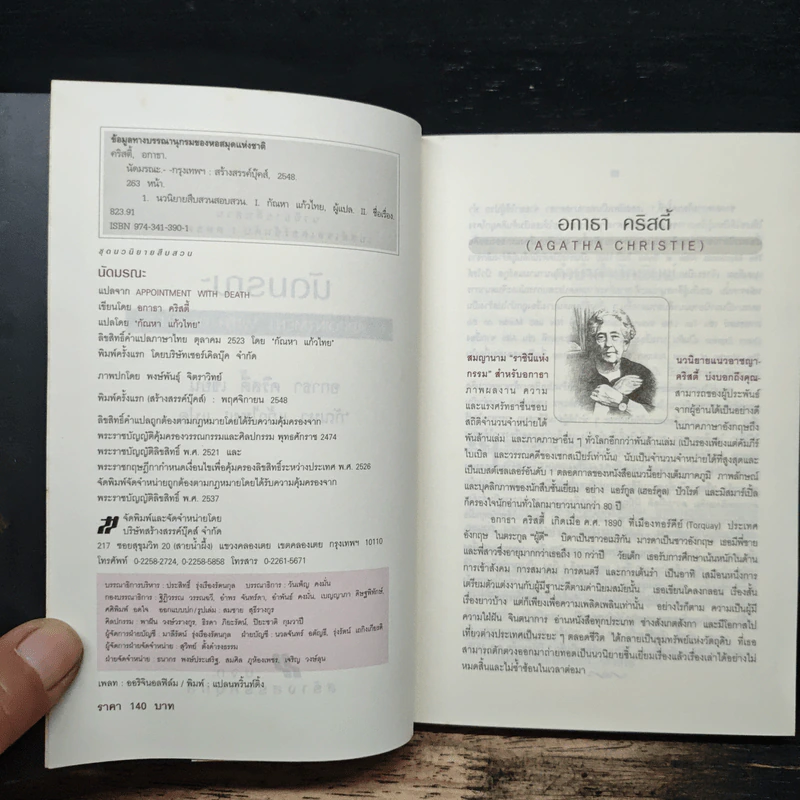 ข้อมูลทางบรรณานุกรมของหอสมุดแห่งชาติ
คริสตี้, อกาธา.
นัดมรณะ.- -กรุงเทพฯ : สร้างสรรค์บุ๊คส์, 2548.
263 หน้า.
1. นวนิยายสืบสวนสอบสวน. I. กัณหา แก้วไทย, ผู้แปล. II. ชื่อเรื่อง.
823.91
ISBN 974-341-390-1
ชุดนวนิยายสืบสวน
นัดมรณะ
แปลจาก APPOINTMENT WITH DEATH
เขียนโดย อกาธา คริสตี้
แปลโดย "กัณหา แก้วไทย"
ลิขสิทธิ์คำแปลภาษาไทย ตุลาคม 2523 โดย "กัณหา แก้วไทย"
พิมพ์ครั้งแรก โดยบริษัทเซอร์เคิลบุ๊ค จำกัด
ภาพปกโดย พงษ์พันธุ์ จิตราวิทย์
พิมพ์ครั้งแรก (สร้างสรรค์บุ๊คส์) : พฤศจิกายน 2548
ลิขสิทธิ์คำแปลถูกต้องตามกฎหมายโดยได้รับความคุ้มครองจาก
พระราชบัญญัติคุ้มครองวรรณกรรมและศิลปกรรม พุทธศักราช 2474
พระราชบัญญัติลิขสิทธิ์ พ.ศ. 2521 และ
พระราชกฤษฎีกากำหนดเงื่อนไขเพื่อคุ้มครองลิขสิทธิ์ระหว่างประเทศ พ.ศ. 2526
จัดพิมพ์จัดจำหน่ายถูกต้องตามกฎหมายโดยได้รับความคุ้มครองจาก
พระราชบัญญัติลิขสิทธิ์ พ.ศ. 2537
จัดพิมพ์และจัดจำหน่ายโดย
บริษัทสร้างสรรค์บุ๊คส์ จำกัด
217 ซอยสุขุมวิท 20 (สายน้ำผึ้ง) แขวงคลองเตย เขตคลองเตย กรุงเทพฯ 10110
โทรศัพท์ 0-2258-2724, 0-2258-5858 โทรสาร 0-2261-5671
บรรณาธิการบริหาร : ประสิทธิ์ รุ่งเรืองรัตนกุล บรรณาธิการ : วันเพ็ญ คงมั่น
กองบรรณาธิการ : ฐิติวรรณ วรรณจวี, อำพร จันทรคา, อำพันธ์ คงมั่น, เบญญาภา
ศศิพิมพ์ ออกแบบปก/รูปเล่ม : สมชาย สุริรางกูร
ศิลปกรรม : พาฝัน วงษ์วรางกูร, ธิรดา ภิยะรัตน์, ปิยะชาติ กุมวาปี
ผู้จัดการฝ่ายบัญชี : มาลีรัตน์ รุ่งเรืองรัตนกุล ฝ่ายบัญชี : นวลจันทร์ รุ่งรัตน์
ผู้จัดการฝ่ายจัดจำหน่าย : สุวิทย์ ตั้งดำรงธรรม
ฝ่ายจัดจำหน่าย : ธนากร พงษ์ประเสริฐ, สมศิล ภูห้องเพชร, เจริญ วงษ์ลุน
เพลท : ออริจินอลฟิล์ม / พิมพ์ : แปลนพริ้นท์ติ้ง
ราคา 140 บาท
อกาธา คริสตี้
(AGATHA CHRISTIE)
สมญานาม "ราชินีแห่งนวนิยายแนวอาชญา-
กรรม" สำหรับอกาธา คริสตี้ บ่งบอกถึงคุณ-
ภาพผลงาน ความสามารถของผู้ประพันธ์
และแรงศรัทธาชื่นชอบจากผู้อ่านได้เป็นอย่างดี
สถิติจำนวนจำหน่ายได้ในภาคภาษาอังกฤษถึง
พันล้านเล่ม และภาคภาษาอื่น ๆ ทั่วโลกอีกกว่าพันล้านเล่ม (เป็นรองเพียงแต่คัมภีร์
ไบเบิล และวรรณคดีของเชกสเปียร์เท่านั้น) นับเป็นจำนวนจำหน่ายได้ที่สูงสุดและ
เป็นเบสต์เซลเลอร์อันดับ 1 ตลอดกาลของหนังสือแนวนี้อย่างเต็มภาคภูมิ ภาพลักษณ์
และบุคลิกภาพของนักสืบชั้นเยี่ยม อย่าง แอร์กูล (เฮอร์คูล) ปัวโรต์ และมิสมาร์เปิ้ล
ก็ครองใจนักอ่านทั่วโลกมายาวนานกว่า 80 ปี
อกาธา คริสตี้ เกิดเมื่อปี ค.ศ. 1890 ที่เมืองทอร์คีย์ (Torquay) ประเทศ
อังกฤษ ในตระกูล "ผู้ดี" บิดาเป็นชาวอเมริกัน มารดาเป็นชาวอังกฤษ เธอมีพี่ชาย
และพี่สาวซึ่งอายุมากกว่าเธอถึง 10 กว่าปี วัยเด็ก เธอรับการศึกษาเน้นหนักในด้าน
การเข้าสังคม การสมาคม การดนตรี และการเต้นรำ เป็นอาทิ เสมือนหนึ่งการ
เตรียมตัวแต่งงานกับผู้มีฐานะดีตามค่านิยมสมัยนั้น เธอเขียนโคลงกลอน เรื่องสั้น
เรื่องยาวบ้าง แต่ก็เพียงเพื่อความเพลิดเพลินเท่านั้น อย่างไรก็ตาม ความเป็นผู้มี
ความใฝ่ฝัน จินตนาการ อ่านหนังสือทุกประเภท ช่างสังเกตสังกา และมีโอกาสไป
เที่ยวต่างประเทศเป็นระยะ ๆ ตลอดชีวิต ได้กลายเป็นขุมทรัพย์แห่งวัตถุดิบ ที่เธอ
สามารถตักตวงออกมาถ่ายทอดเป็นนวนิยายชิ้นเยี่ยมเรื่องแล้วเรื่องเล่าได้อย่างไม่
หมดสิ้นและไม่ซ้ำซ้อนในเวลาต่อมา